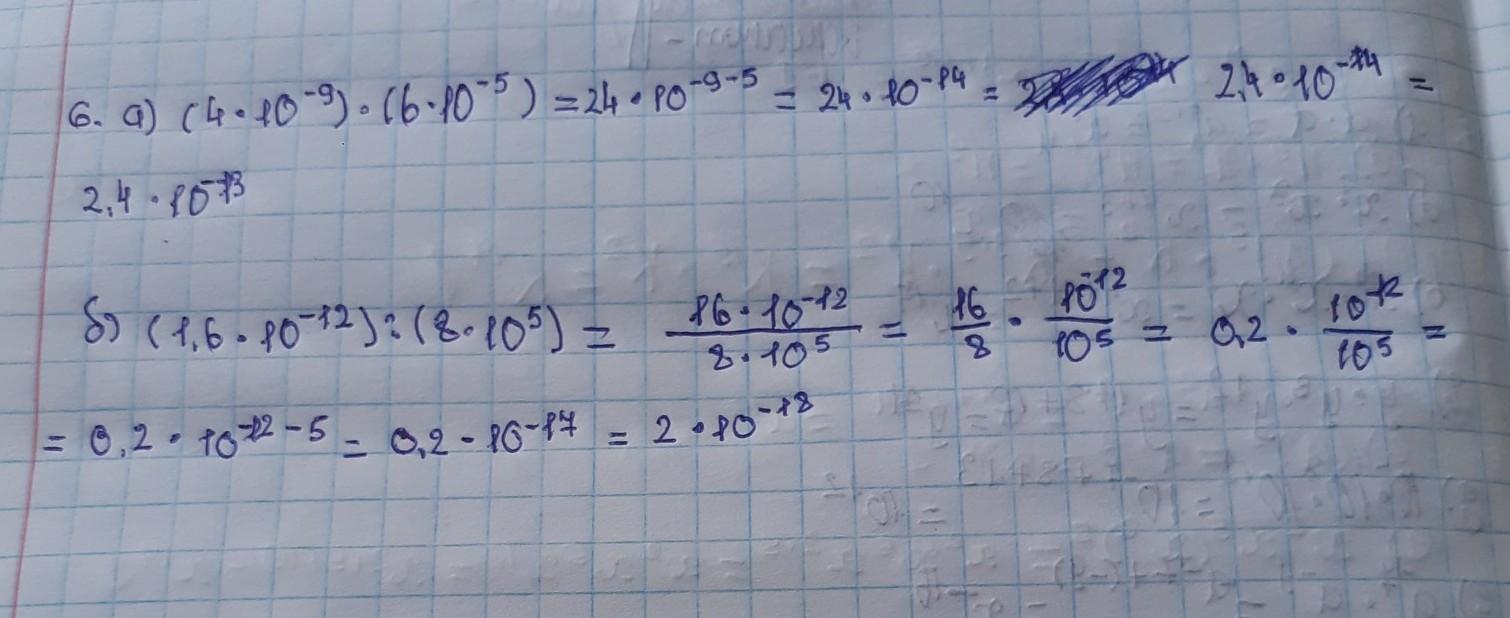 6. а) (4·10⁻⁹)·(6·10⁻⁵) = 24·10⁻⁹⁻⁵ = 24·10⁻¹⁴ = 2,4·10⁻¹⁴ =
2,4·10⁻¹³
б) (1,6·10⁻¹²):(8·10⁵) = \frac{16·10⁻¹²}{8·10⁵} = \frac{16}{8}·\frac{10⁻¹²}{10⁵} = 0,2·\frac{10⁻¹²}{10⁵} =
= 0,2·10⁻¹²⁻⁵ = 0,2·10⁻¹⁷ = 2·10⁻¹⁸